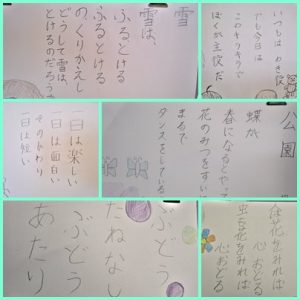 雪
雪は、
ふるとける
ふるとける
のくりかえし
どうして雪は、
とけるのだろう
いつもはわき役
でも今日は
このキラキラで
ぼくが主役だ
一日は楽しい
一日は面白い
そのかわり
一日は短い
公園
蝶が
春になるとやっ
花のみつをすい
まるで
ダンスをしている
ぶどう
たねなし
ぶどう
あたり
花をみれば
心おどる
虫をみれば
心おどる